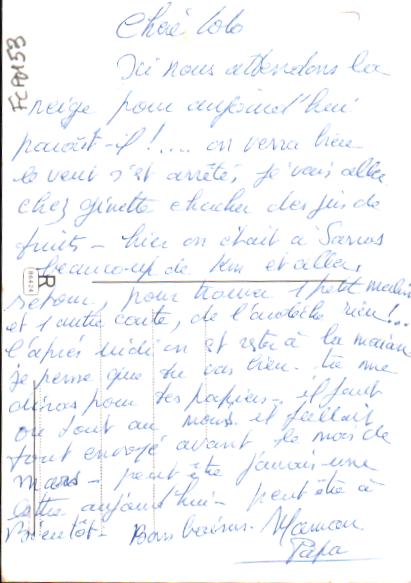 FCP0153
Chéré lolo
Ici nous attendons la
neige pour aujourd'hui
paraît-il!.... on verra bien
le vent s'est arrêté, je vais aller
chez ginette chercher des jus de
fruits - hier on était à
beaucoup de km et aller,
retour, pour trouver 1 petit
et 1 autre carte, de l' rien!...
l'après midi on est resté à la maison
je pense que tu vas bien. tu me
diras pour tes papiers - il faut
ou tout au moins il fallait
tout envoyé avant le mois de
mars - peut être jamais une
lettre aujourd'hui - peut être à
Bientôt - Bons baisers. Maman
Papa
R
86424